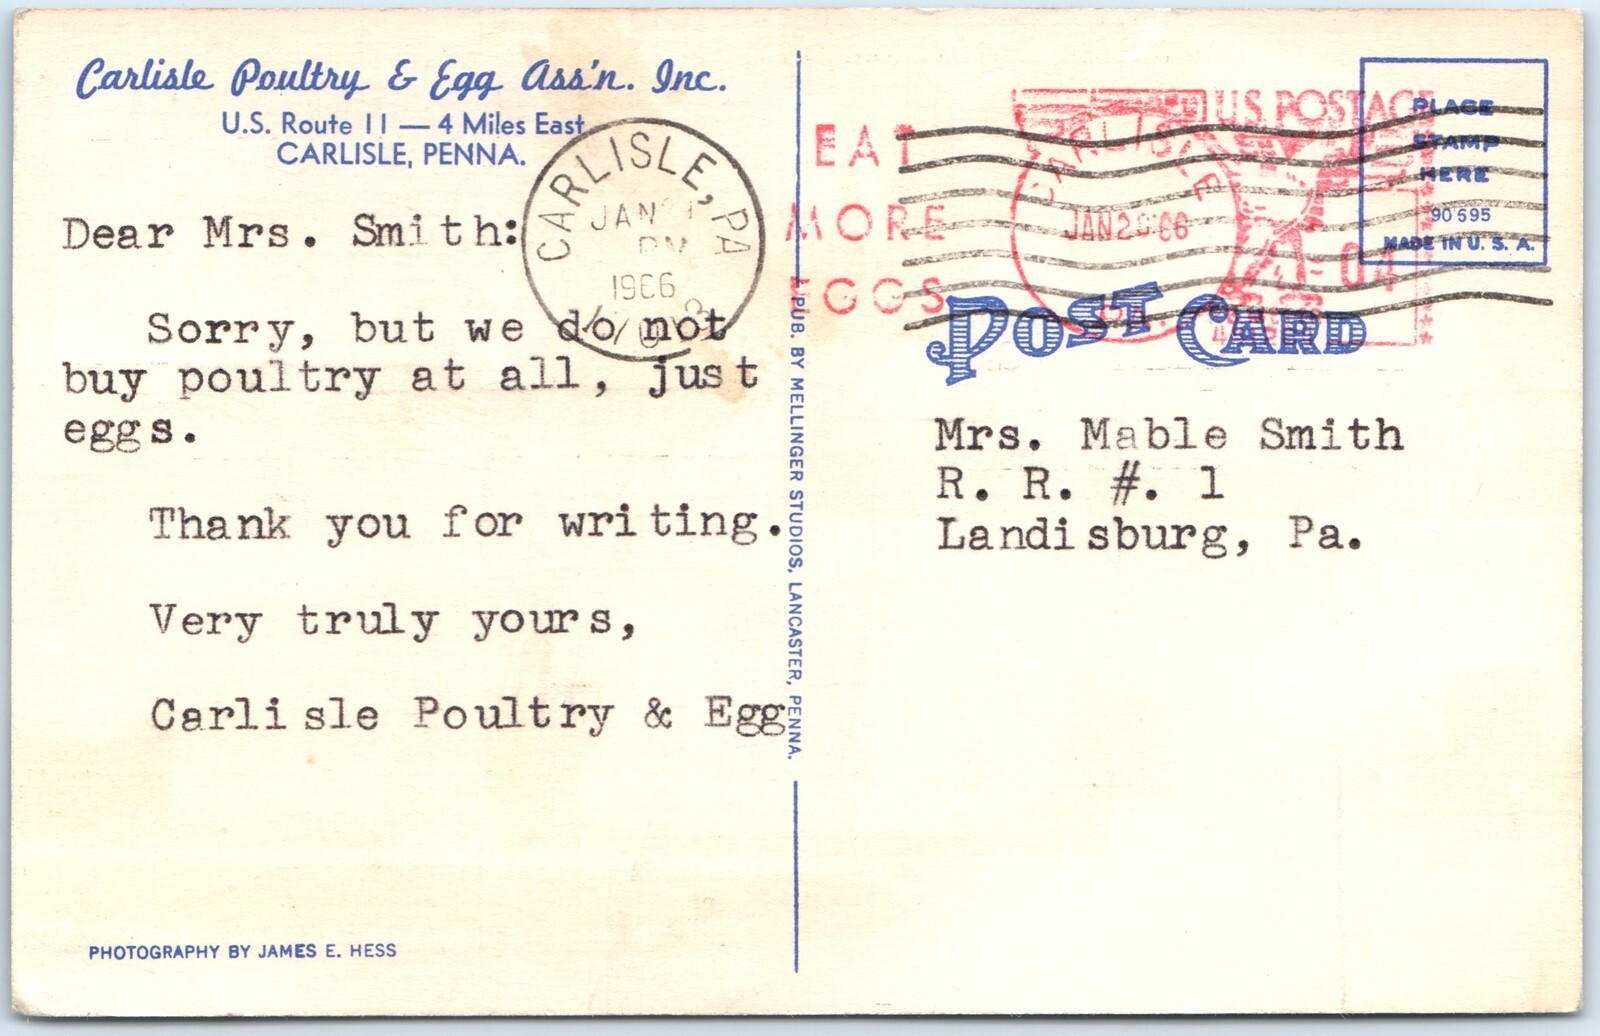 Carlisle Poultry & Egg Ass'n. Inc.
U.S. Route 11 — 4 Miles East
CARLISLE, PENNA.
CARLISLE, PA
JAN
PM
1966
Dear Mrs. Smith:
Sorry, but we do not
buy poultry at all, just
eggs.
Thank you for writing.
Very truly yours,
Carlisle Poultry & Egg
PHOTOGRAPHY BY JAMES E. HESS
PUB. BY MELLINGER STUDIOS, LANCASTER, PENNA.
EAT
MORE
EGGS
CARLISLE
PA.
U.S. POSTAGE
PLACE
STAMP
HERE
90695
MADE IN U. S. A.
POST CARD
Mrs. Mable Smith
R. R. #. 1
Landisburg, Pa.